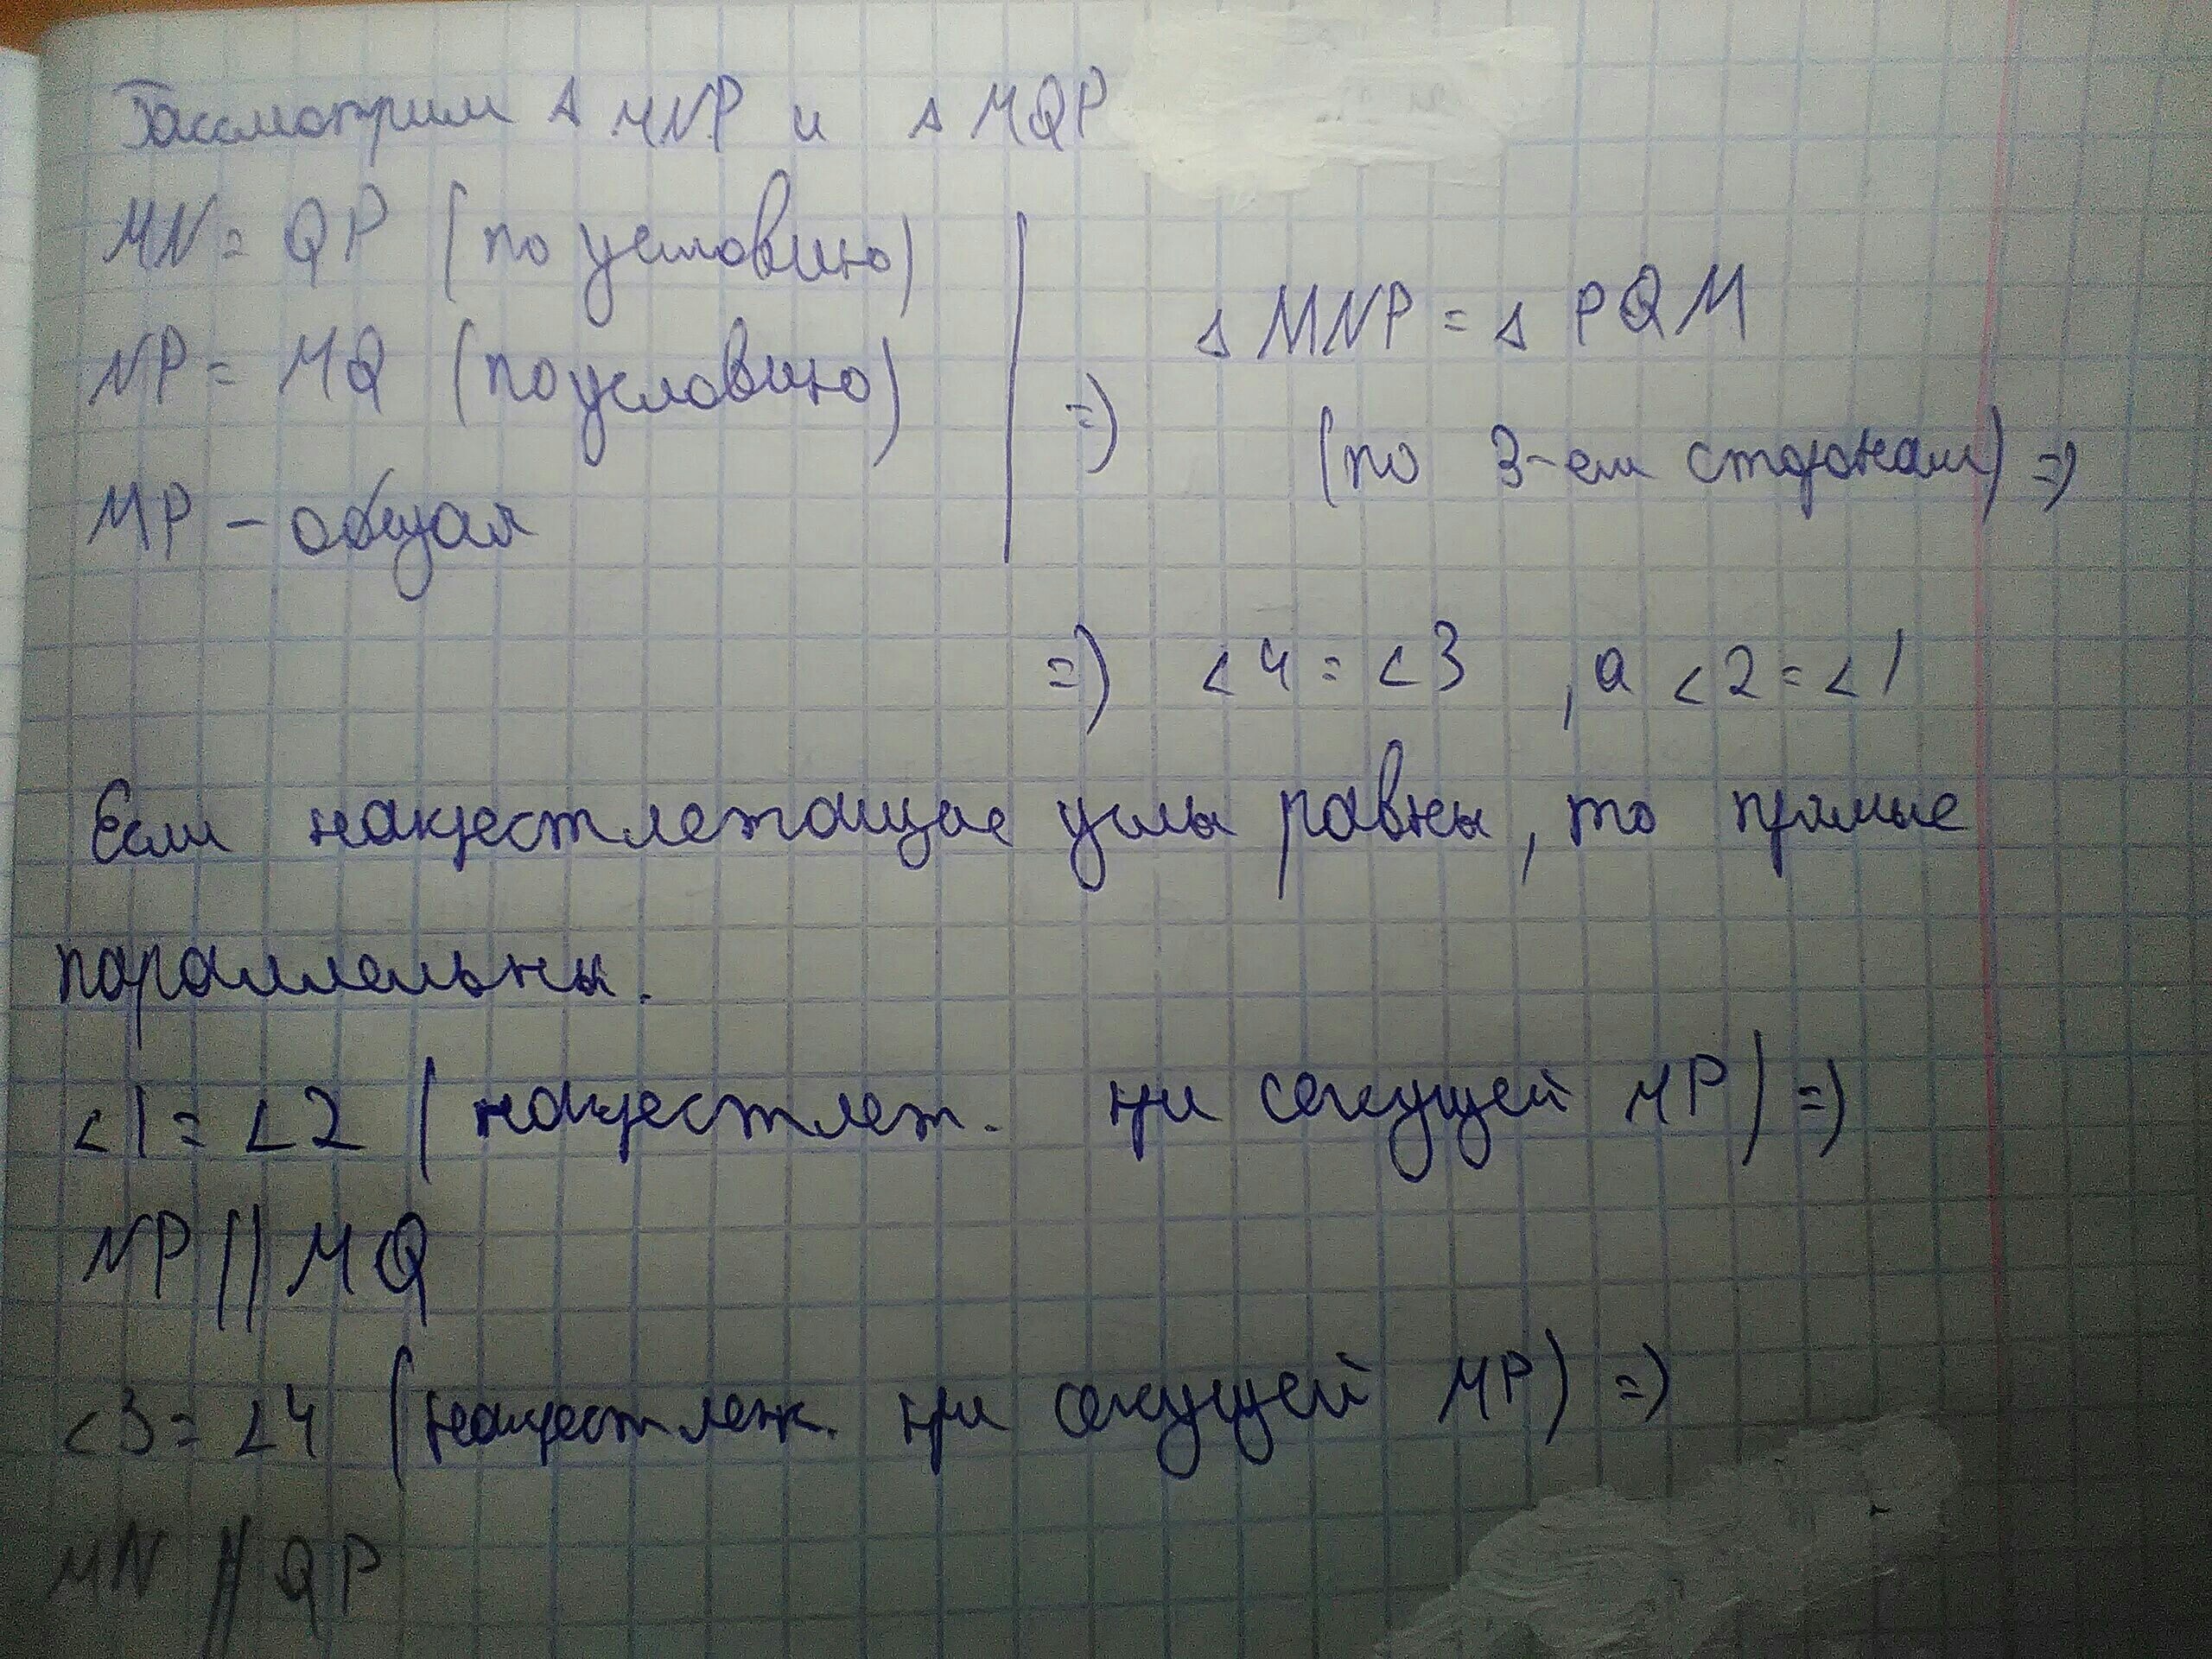 Рассмотрим △ MNP и △ MQP
MN = QP (по условию)
NP = MQ (по условию)
MP – общая
=> △ MNP = △ PQM
(по 3-ем сторонам) =>
=> ∠4 = ∠3 , а ∠2 = ∠1
Если накрестлежащие углы равны, то прямые
параллельны.
∠1 = ∠2 (накрестлеж. при секущей MP) =>
NP || MQ
∠3 = ∠4 (накрестлеж. при секущей MP) =>
MN || QP